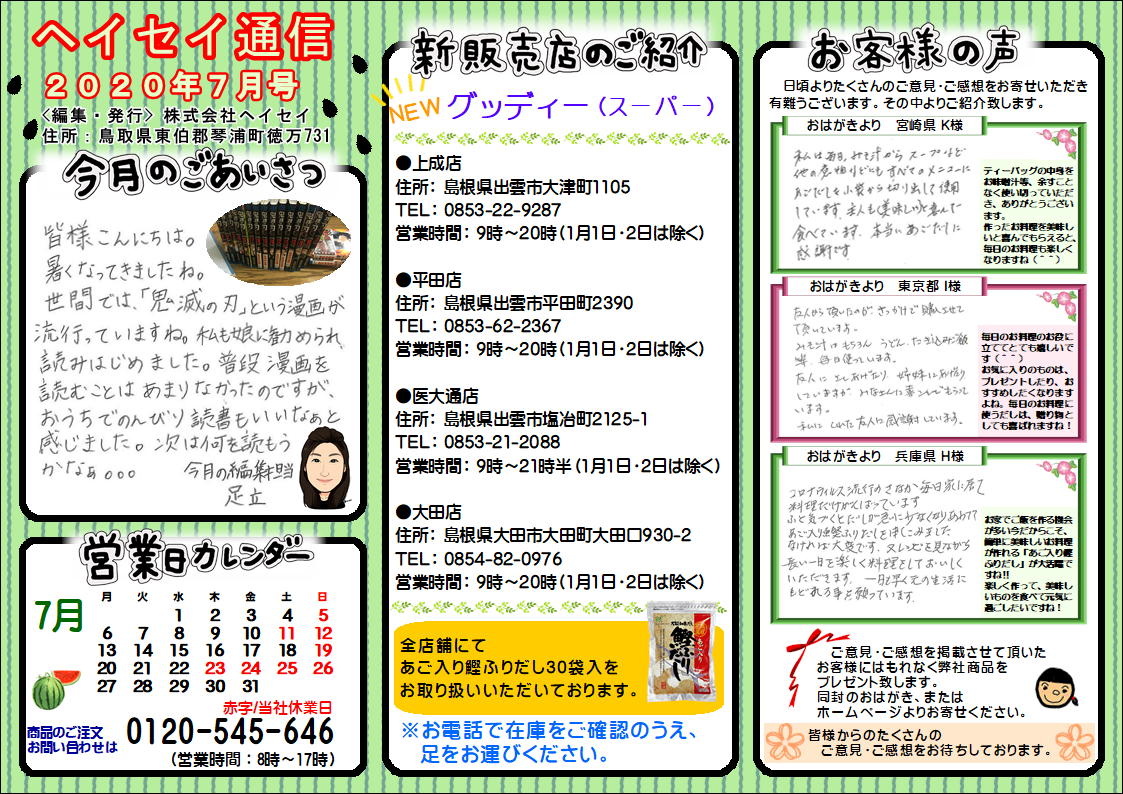 ヘイセイ通信
2020年7月号
<編集・発行> 株式会社ヘイセイ
住所：鳥取県東伯郡琴浦町徳万731
今月のごあいさつ
皆様こんにちは。
暑くなってきましたね。
世間では、「鬼滅の刃」という漫画が
流行っていますね。私も娘に勧められ
読みはじめました。普段漫画を
読むことはあまりなかったのですが、
おうちでのんびり読書もいいなぁと
感じました。次は何を読もう
かなぁ。。。
今月の編集担当
足立
営業日カレンダー
7月
月 火 水 木 金 土 日
1 2 3 4 5
6 7 8 9 10 11 12
13 14 15 16 17 18 19
20 21 22 23 24 25 26
27 28 29 30 31
赤字/当社休業日
商品のご注文
お問い合わせは
0120-545-646
（営業時間：8時～17時）
新販売店のご紹介
NEW グッディー（スーパー）
●上成店
住所： 島根県出雲市大津町1105
TEL： 0853-22-9287
営業時間： 9時～20時（1月1日・2日は除く）
●平田店
住所： 島根県出雲市平田町2390
TEL： 0853-62-2367
営業時間： 9時～20時（1月1日・2日は除く）
●医大通店
住所： 島根県出雲市塩冶町2125-1
TEL： 0853-21-2088
営業時間： 9時～21時半（1月1日・2日は除く）
●大田店
住所： 島根県大田市大田町大田口930-2
TEL： 0854-82-0976
営業時間： 9時～20時（1月1日・2日は除く）
全店舗にて
あご入り鰹ふりだし30袋入を
お取り扱いいただいております。
※お電話で在庫をご確認のうえ、
足をお運びください。
お客様の声
日頃よりたくさんのご意見・ご感想をお寄せいただき
有難うございます。その中よりご紹介致します。
おはがきより 宮崎県 K様
私は毎日、みそ汁から スープなど
他の煮物りにもすべてのメニューに
あごだしを小袋から切り出して使用
しています。主人も美味しいと喜んで
食べています。本当にあごだしに
感謝です
ティーバッグの中身を
お味噌汁等、余すこと
なく使い切っていただ
き、ありがとうござい
ます。
作ったお料理を美味し
いと喜んでもらえると、
毎日のお料理も楽しく
なりますね（＾＾）
おはがきより 東京都 I様
友人から頂いたのがきっかけで購入させて
頂いています。
みそ汁はもちろん うどん、たき込みご飯
等 毎日使っています。
います。
毎日のお料理のお役に
立ててとても嬉しいで
す（＾＾）
お気に入りのものは、
プレゼントしたり、お
すすめしたくなります
よね。毎日のお料理に
使うだしは、贈り物と
しても喜ばれますね！
おはがきより 兵庫県 H様
コロナウイルス流行のさなか毎日家に居て
料理だけがんばっています
ふと気づくとだしが急に少なくなりあわてて
あご入り鰹ふりだしを注文しました
なければ大変です。
長い一日を楽しく料理をしておいしく
いただきます。一日も早く元の生活に
もどれる事を願っています。
お家でご飯を作る機会
が多い今だからこそ、
簡単に美味しいお料理
が作れる「あご入り鰹
ふりだし」が大活躍で
すね!!
楽しく作って、美味し
いものを食べて元気に
過ごしたいですね！
ご意見・ご感想を掲載させて頂いた
お客様にはもれなく弊社商品を
プレゼント致します。
同封のおはがき、または
ホームページよりお寄せください。
皆様からのたくさんの
ご意見・ご感想をお待ちしております。